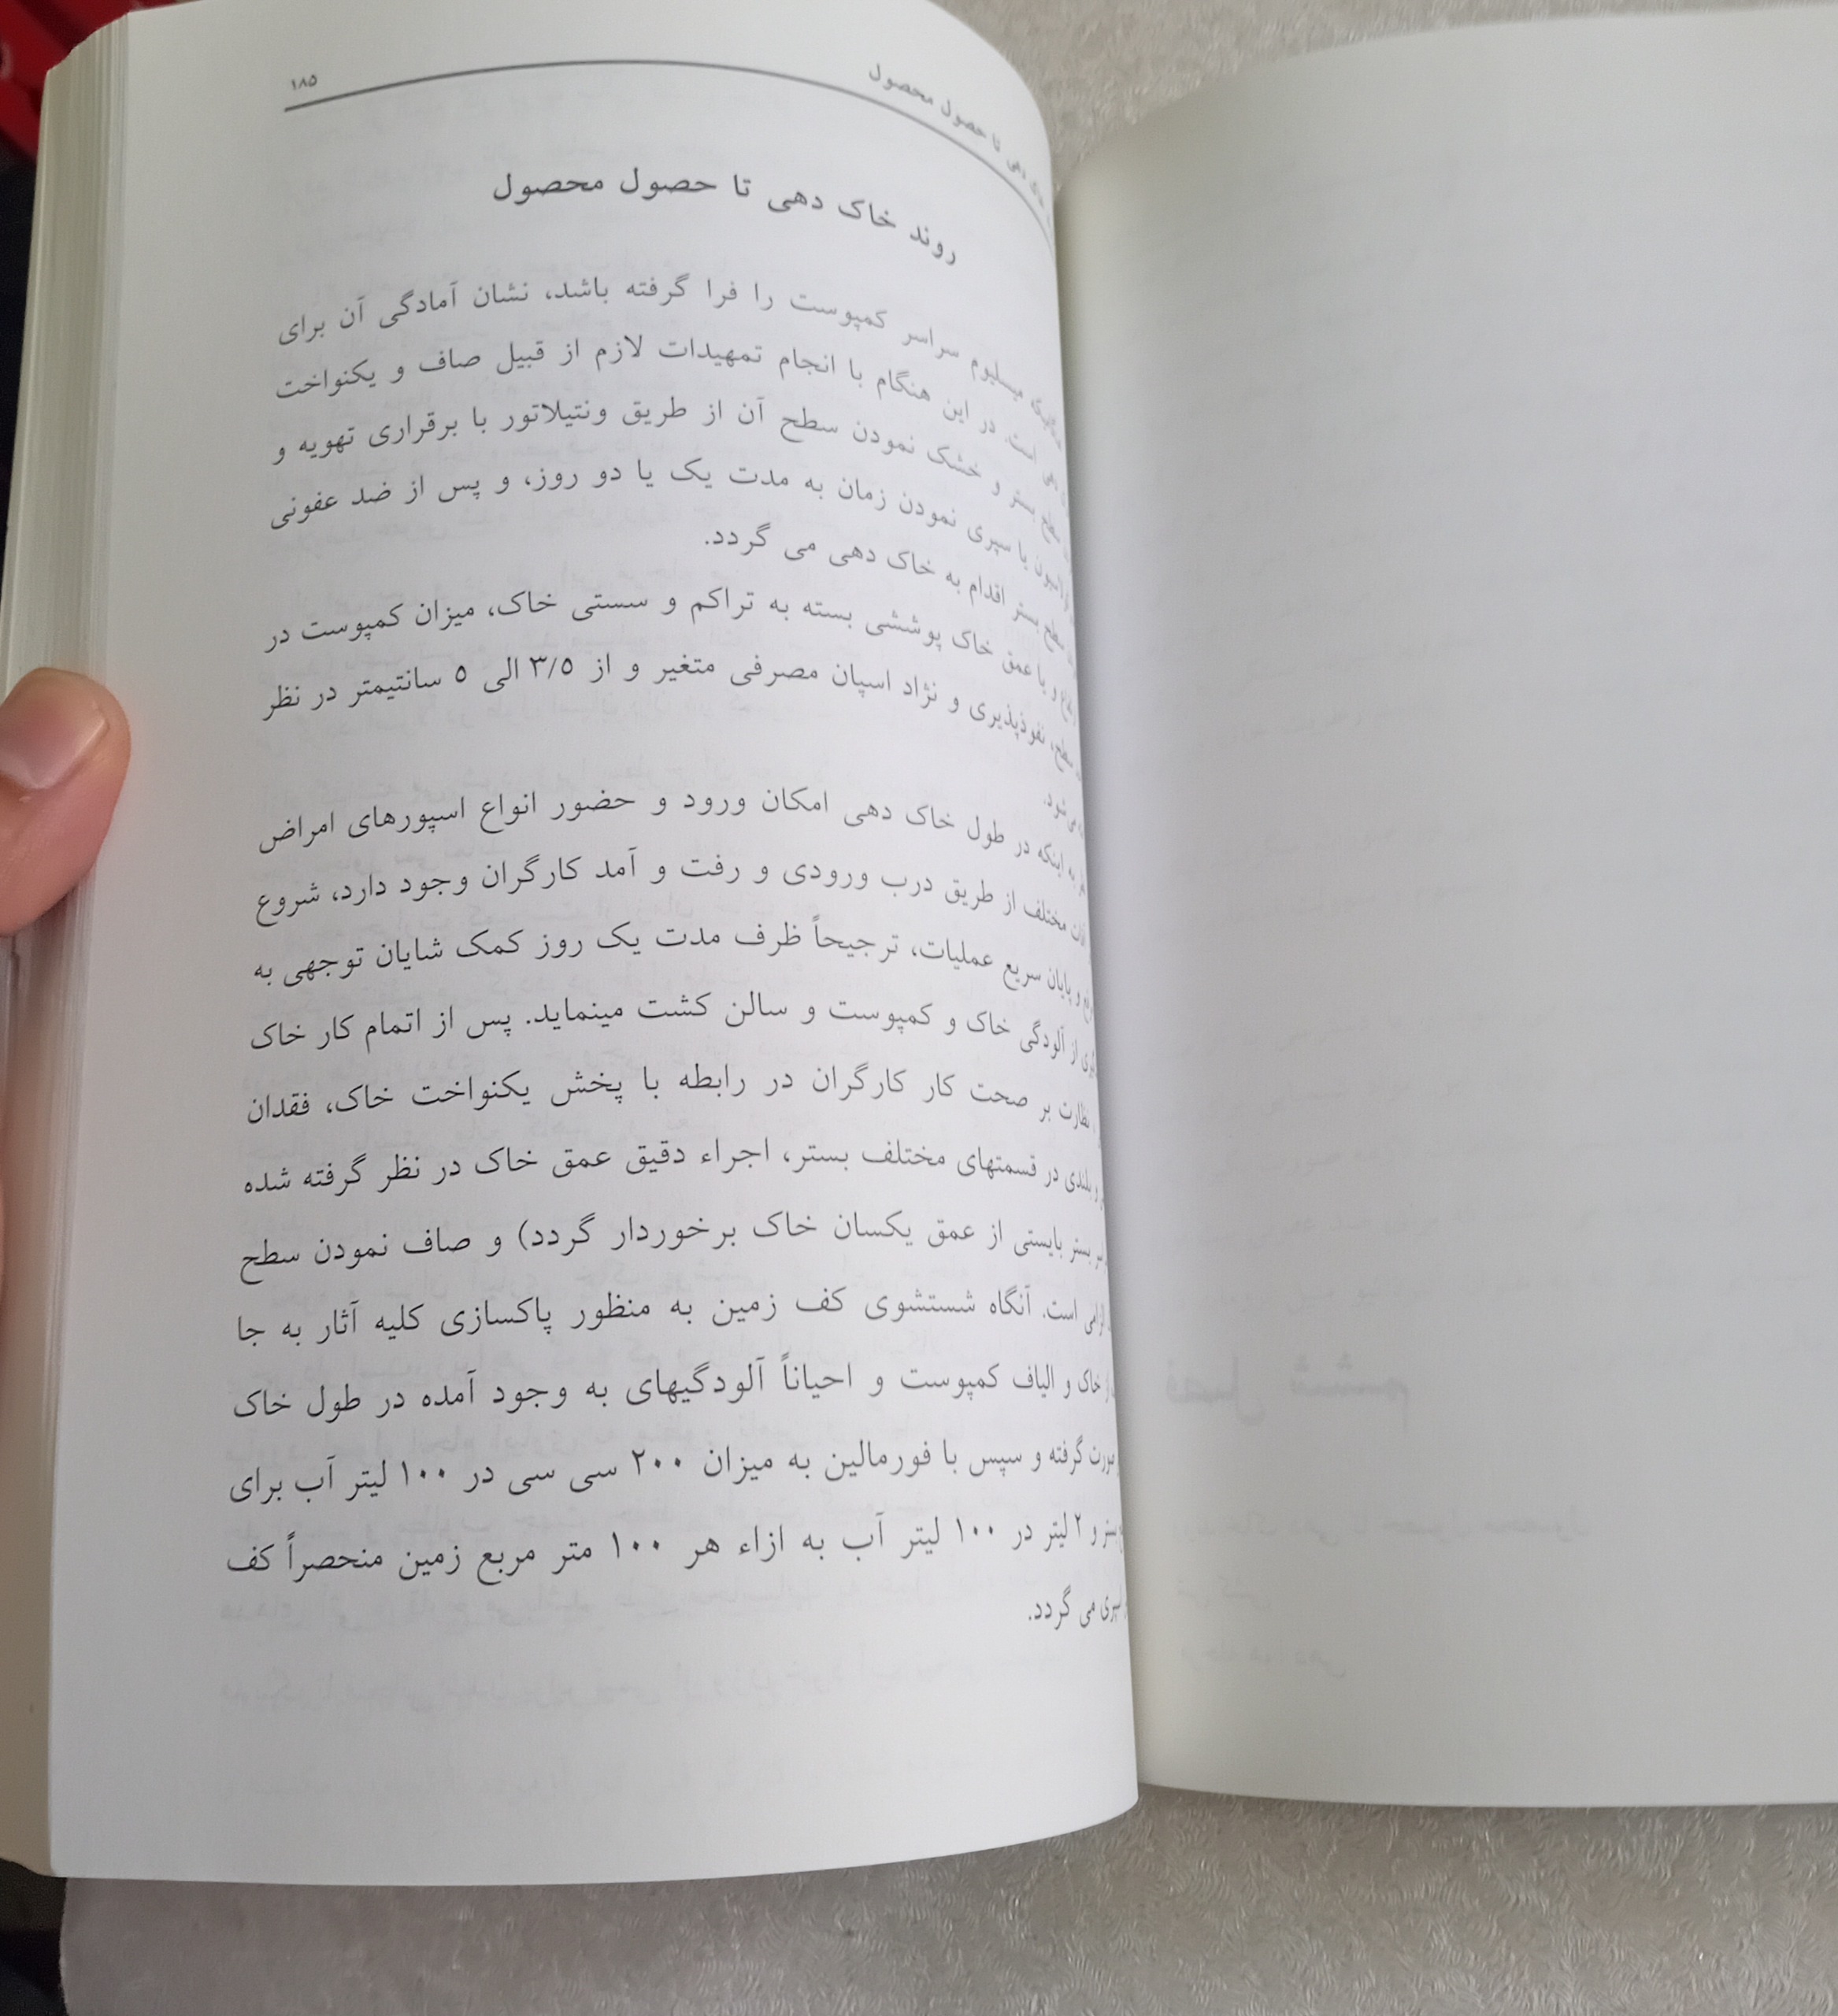 دهی تا حصول محصول ۱۸۵
روند خاک دهی تا حصول محصول
میسلیوم سراسر کمپوست را فرا گرفته باشد، نشان آمادگی آن برای
دهی است. در این هنگام با انجام تمهیدات لازم از قبیل صاف و یکنواخت
سطح بستر و خشک نمودن سطح آن از طریق ونتیلاتور با برقراری تهویه و
با سپری نمودن زمان به مدت یک یا دو روز، و پس از ضد عفونی
سطح بستر اقدام به خاک دهی می گردد.
و یا عمق خاک پوششی بسته به تراکم و سستی خاک، میزان کمپوست در
سطح، نفوذپذیری و نژاد اسپان مصرفی متغیر و از ۳/۵ الی ۵ سانتیمتر در نظر
می شود.
به اینکه در طول خاک دهی امکان ورود و حضور انواع اسپورهای امراض
مختلف از طریق درب ورودی و رفت و آمد کارگران وجود دارد، شروع
و پایان سریع عملیات، ترجیحاً ظرف مدت یک روز کمک شایان توجهی به
از آلودگی خاک و کمپوست و سالن کشت مینماید. پس از اتمام کار خاک
نظارت بر صحت کار کارگران در رابطه با پخش یکنواخت خاک، فقدان
و بلندی در قسمتهای مختلف بستر، اجراء دقیق عمق خاک در نظر گرفته شده
بستر بایستی از عمق یکسان خاک برخوردار گردد) و صاف نمودن سطح
الزامی است. آنگاه شستشوی کف زمین به منظور پاکسازی کلیه آثار به جا
خاک و الیاف کمپوست و احیاناً آلودگیهای به وجود آمده در طول خاک
صورت گرفته و سپس با فورمالین به میزان ۲۰۰ سی سی در ۱۰۰ لیتر آب برای
بستر و ۲ لیتر در ۱۰۰ لیتر آب به ازاء هر ۱۰۰ متر مربع زمین منحصراً کف
می گردد.